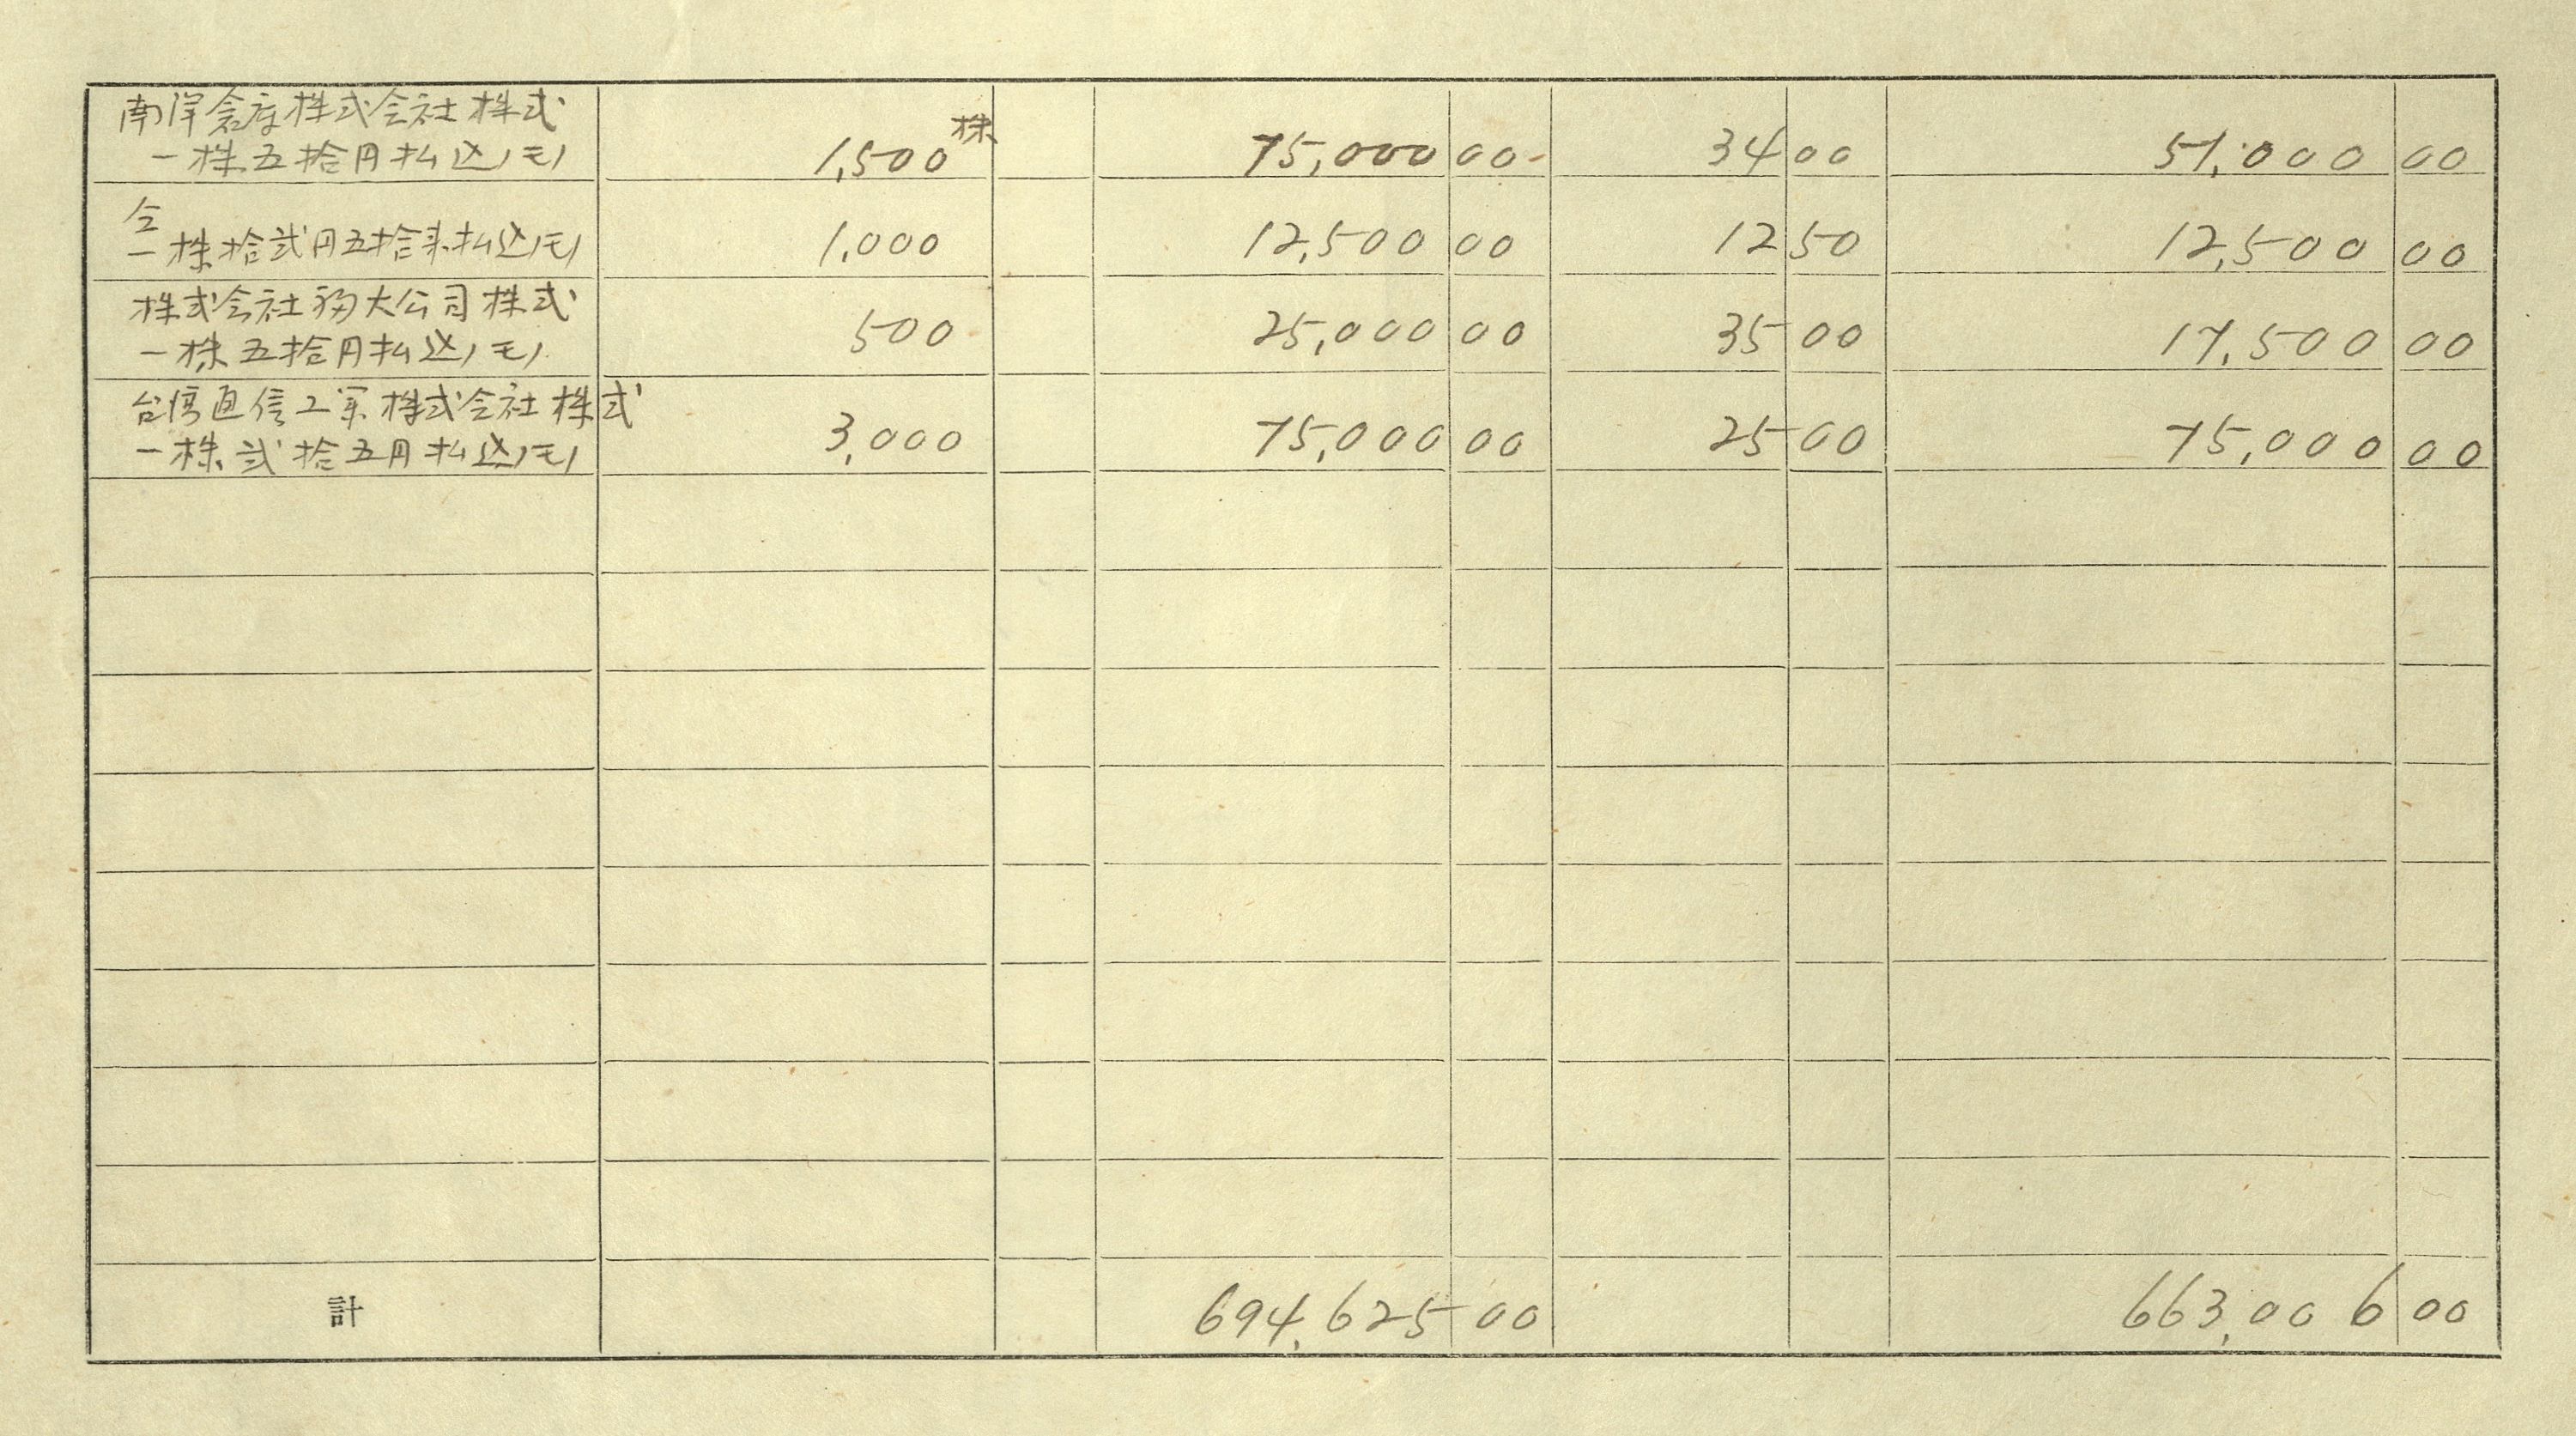 南洋倉庫株式会社株式
一株五拾円払込ノモノ 1,500株 75,000 00 34 00 51,000 00
仝
一株拾弐円五拾銭払込ノモノ 1,000 12,500 00 12 50 12,500 00
株式会社福大公司株式
一株五拾円払込ノモノ 500 25,000 00 35 00 17,500 00
台湾通信工業株式会社株式
一株弐拾五円払込ノモノ 3,000 75,000 00 25 00 75,000 00
計 694,625 00 663,006 00